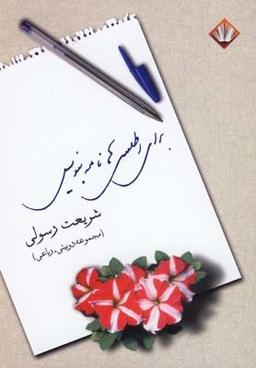 برای اطلسی‌ها نامه بنویس
شریعت رسولی
(مجموعه دوبیتی-رباعی)